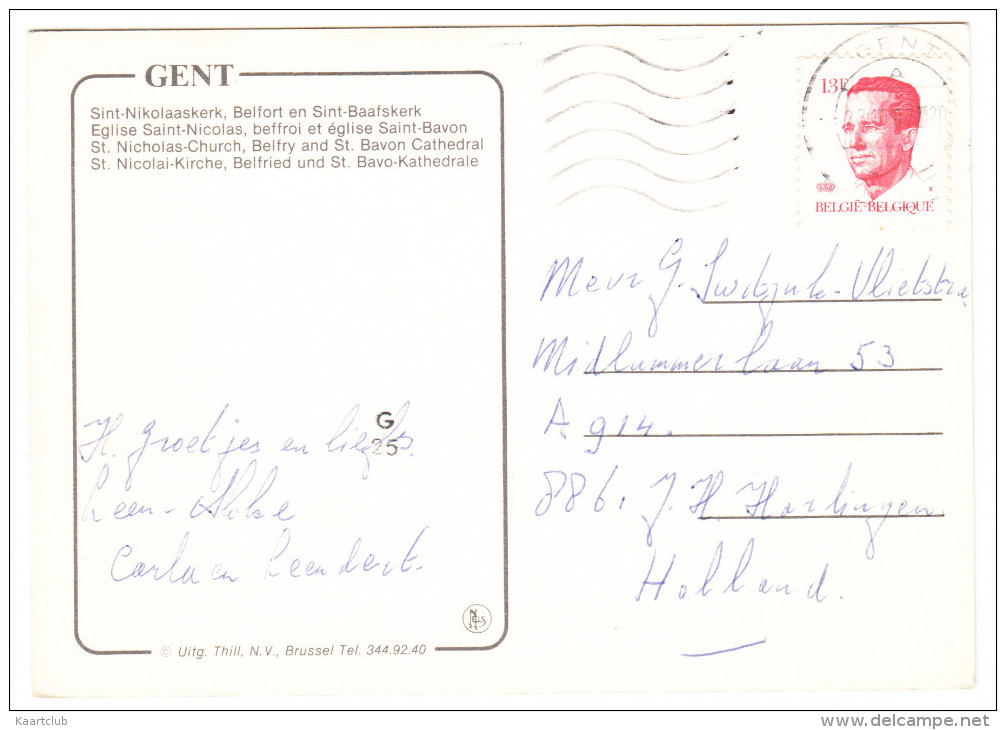 GENT
Sint-Nikolaaskerk, Belfort en Sint-Baafskerk
Eglise Saint-Nicolas, beffroi et église Saint-Bavon
St. Nicholas-Church, Belfry and St. Bavon Cathedral
St. Nicolai-Kirche, Belfried und St. Bavo-Kathedrale
G
25
H. groetjes en liefs.
Leen - Akke
Carla en Leendert.
© Uitg. Thill, N.V., Brussel Tel. 344.92.40
GENT
A
13F
BELGIË-BELGIQUE
Mevr G. Vlietstra
Midlummerlaan 53
A 914.
886. J. H. Harlingen
Holland.
Kaartclub
www.delcampe.net